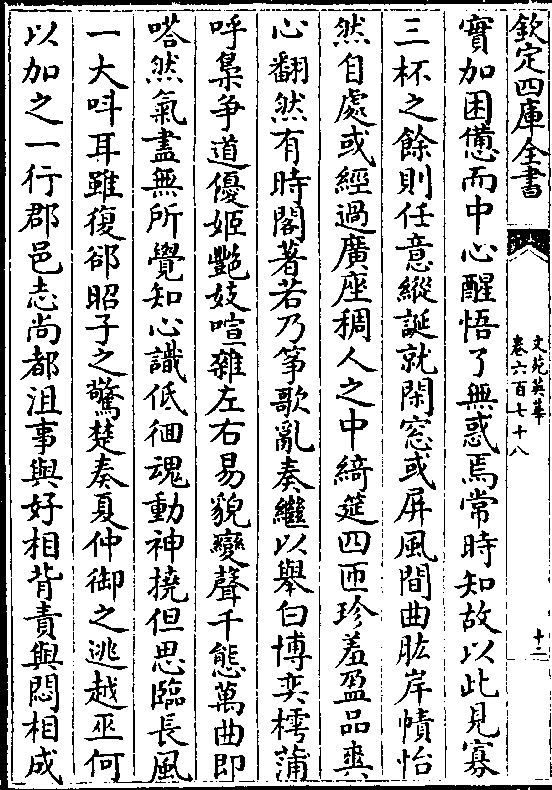 欽定四庫全書
文苑英華
卷六百七十八
十二
實加困憊而中心醒悟了無惑焉常時知故以此見寡
三杯之餘則任意縱誕就閑窓或屏風間曲肱岸幘怡
然自處或經過廣座稠人之中綺筵四匝珍羞盈品爽
心翻然有時閣著若乃筝歌亂奏繼以舉白博奕樗蒲
呼梟争道優姬艷妓喧雜左右易貌變聲千態萬曲即
嗒然氣盡無所覺知心識低徊魂動神撓但思臨長風
一大呌耳雖復郤昭子之驚楚奏夏仲御之逃越巫何
以加之一行郡邑志尚都沮事與好相背責與悶相成